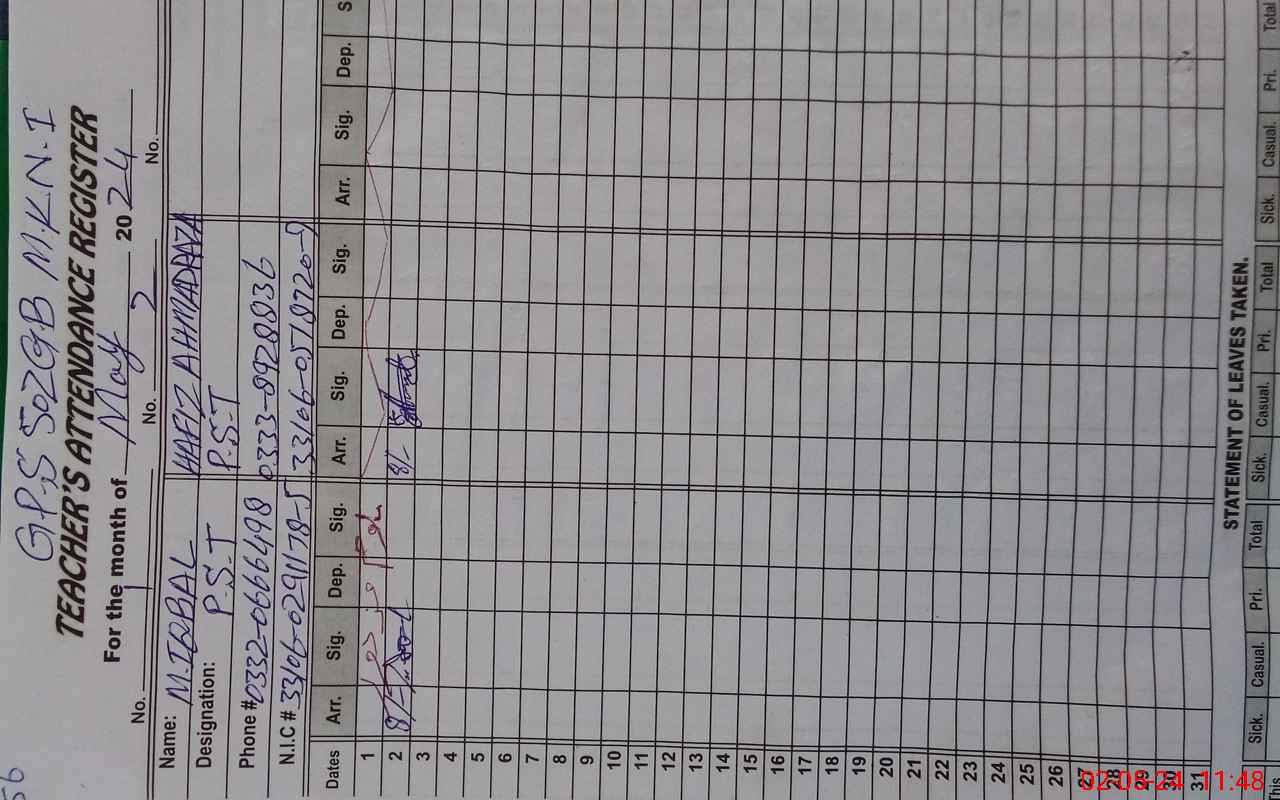 G.P.S 502GB M.K.N.I
TEACHER'S ATTENDANCE REGISTER
For the month of May 2024
No. 1 No. 2 No.
Name: M.IQBAL HAFIZ AHMADRAZA
Designation: P.S.T P.S.T
Phone # 0332-0666498 0333-8928836
N.I.C # 33106-0291178-5 33106-0578720-9
Dates Arr. Sig. Dep. Sig. Arr. Sig. Dep. Sig. Arr. Sig. Dep. S
1
2 8/- 8/-
3
4
5
6
7
8
9
10
11
12
13
14
15
16
17
18
19
20
21
22
23
24
25
26
27
28
29
30
31
STATEMENT OF LEAVES TAKEN.
Sick. Casual. Pri. Total Sick. Casual. Pri. Total Sick. Casual. Pri. Total
This
56
02-08-24 11:48